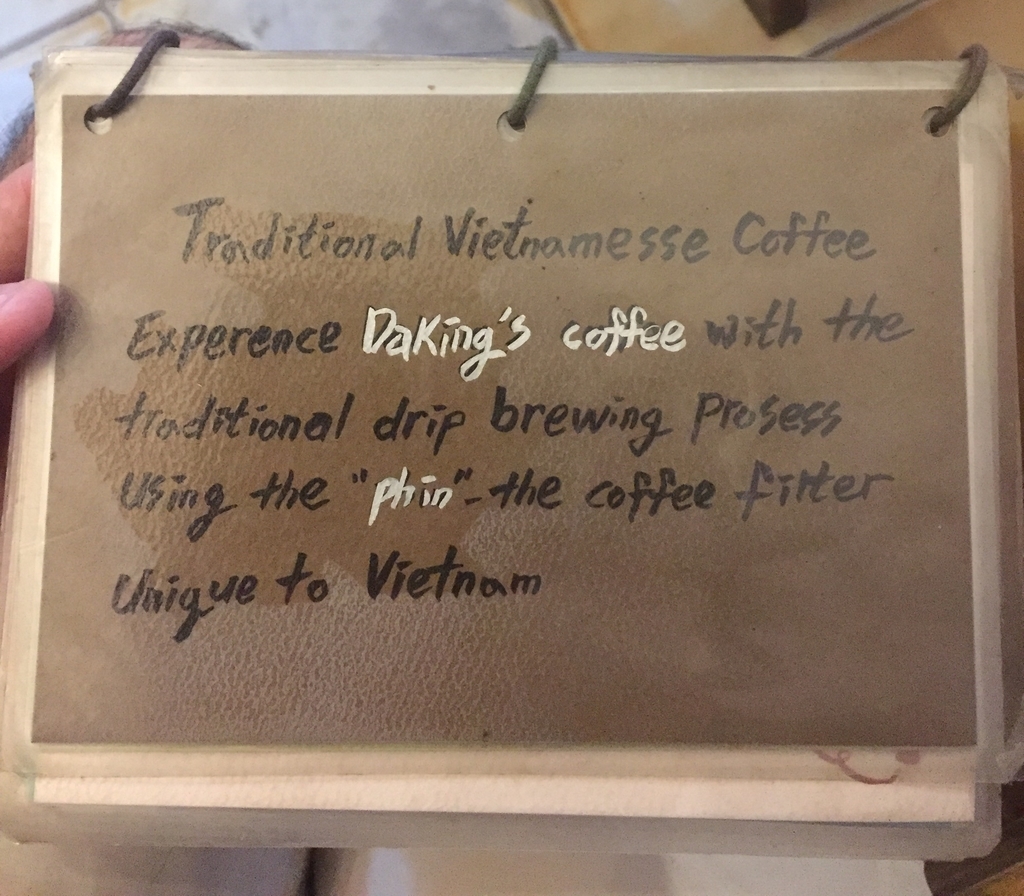 Traditional Vietnamesse Coffee
Experence DaKing's coffee with the
traditional drip brewing prosess
Using the "phin"-the coffee filter
Unique to Vietnam